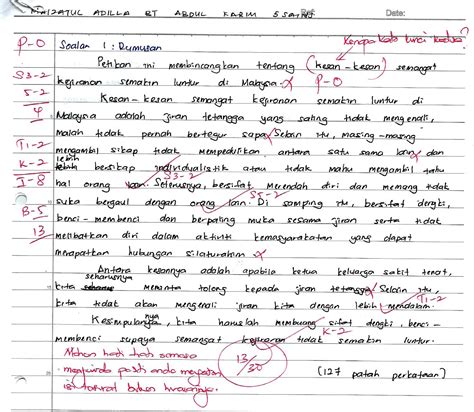 FAIZATUL ADILLA BT ABDUL KARIM 5 SAINS Date:
Kenapa kata kunci kedua?
P-O Soalan 1 : Rumusan
Petikan ini membincangkan tentang (kesan-kesan) semangat
S3-2 kejiranan semakin luntur di Malaysia. P-O
S-2 Kesan-kesan semangat kejiranan semakin luntur di
4 Malaysia adalah jiran tetangga yang saling tidak mengenali,
malah tidak pernah bertegur sapa. Selain itu, masing-masing
T1-2 mengambil sikap tidak mempedulikan antara satu sama lain dan
K-2 lebih bersikap individualistik atau tidak mahu mengambil tahu
I-8 hal orang lain. S3-2 Seterusnya, bersifat merendah diri dan memang tidak
suka bergaul dengan orang lain. S5-2 Di samping itu, bersifat dengki,
B-5 benci-membenci dan berpaling muka sesama jiran serta tidak
13 melibatkan diri dalam aktiviti kemasyarakatan yang dapat
merapatkan hubungan silaturahim.
Antara kesannya adalah apabila ketua keluarga sakit tenat,
kita seharusnya meminta tolong kepada jiran tetangga. Selain itu,
kita tidak akan mengenali jiran kita dengan lebih mendalam. T1-2
Kesimpulannya, kita haruslah membuang sifat dengki, benci-
K-2
membenci supaya semangat kejiranan tidak semakin luntur.
13/30
(127 patah perkataan)